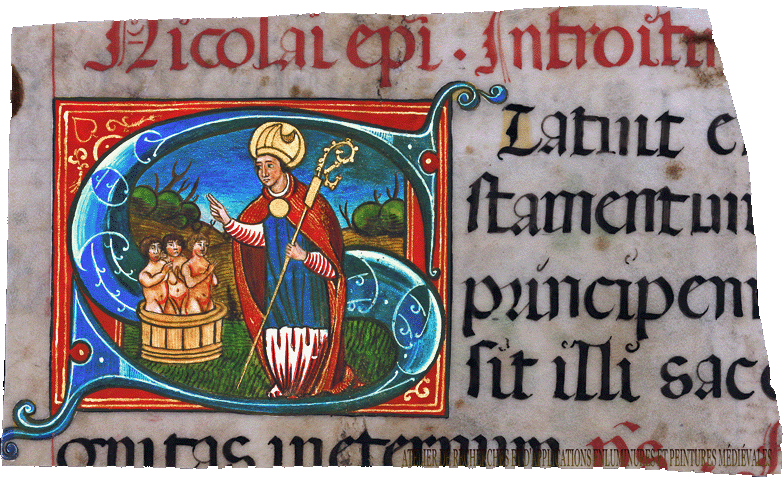 Nicolai epi. Introitu
Statuit e
stamentum
principem
sit illi sace
gnitas in eternum
ATELIER DE RECHERCHES ET D'APPLICATIONS ENLUMINURES ET PEINTURES MÉDIÉVALES